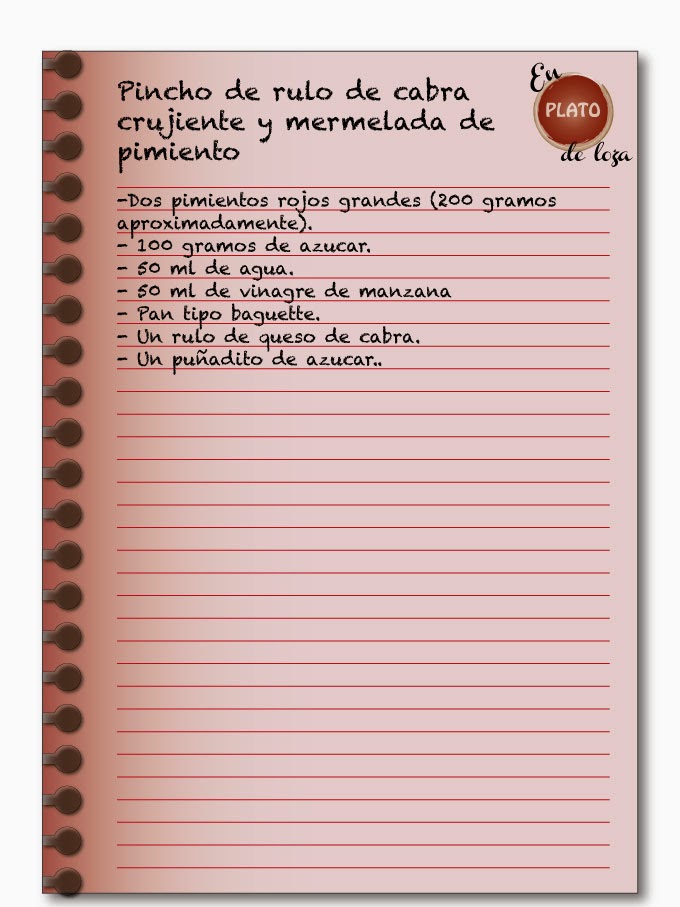 Pincho de rulo de cabra
crujiente y mermelada de
pimiento
En
PLATO
de loza
-Dos pimientos rojos grandes (200 gramos
aproximadamente).
- 100 gramos de azucar.
- 50 ml de agua.
- 50 ml de vinagre de manzana
- Pan tipo baguette.
- Un rulo de queso de cabra.
- Un puñadito de azucar..